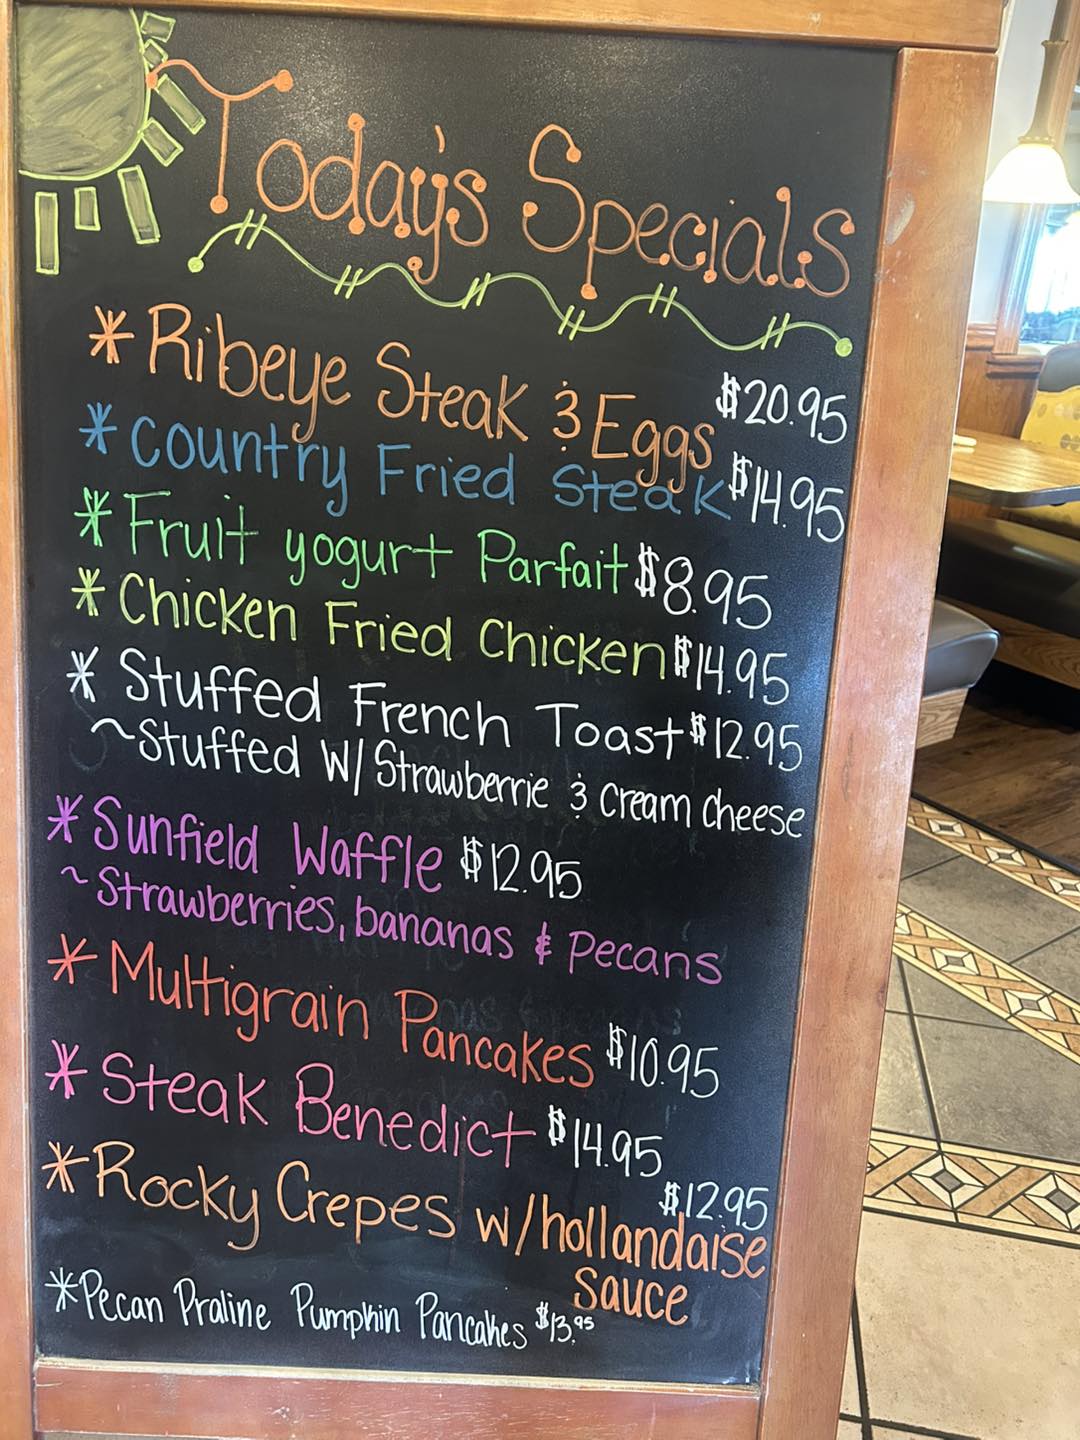 Today's Specials
*Ribeye Steak & Eggs $20.95
*Country Fried Steak $14.95
*Fruit yogurt Parfait $8.95
*Chicken Fried Chicken $14.95
*Stuffed French Toast $12.95
~Stuffed W/ Strawberrie & cream cheese
*Sunfield Waffle $12.95
~Strawberries, bananas & Pecans
*Multigrain Pancakes $10.95
*Steak Benedict $14.95
*Rocky Crepes w/hollandaise $12.95
sauce
*Pecan Praline Pumpkin Pancakes $13.95